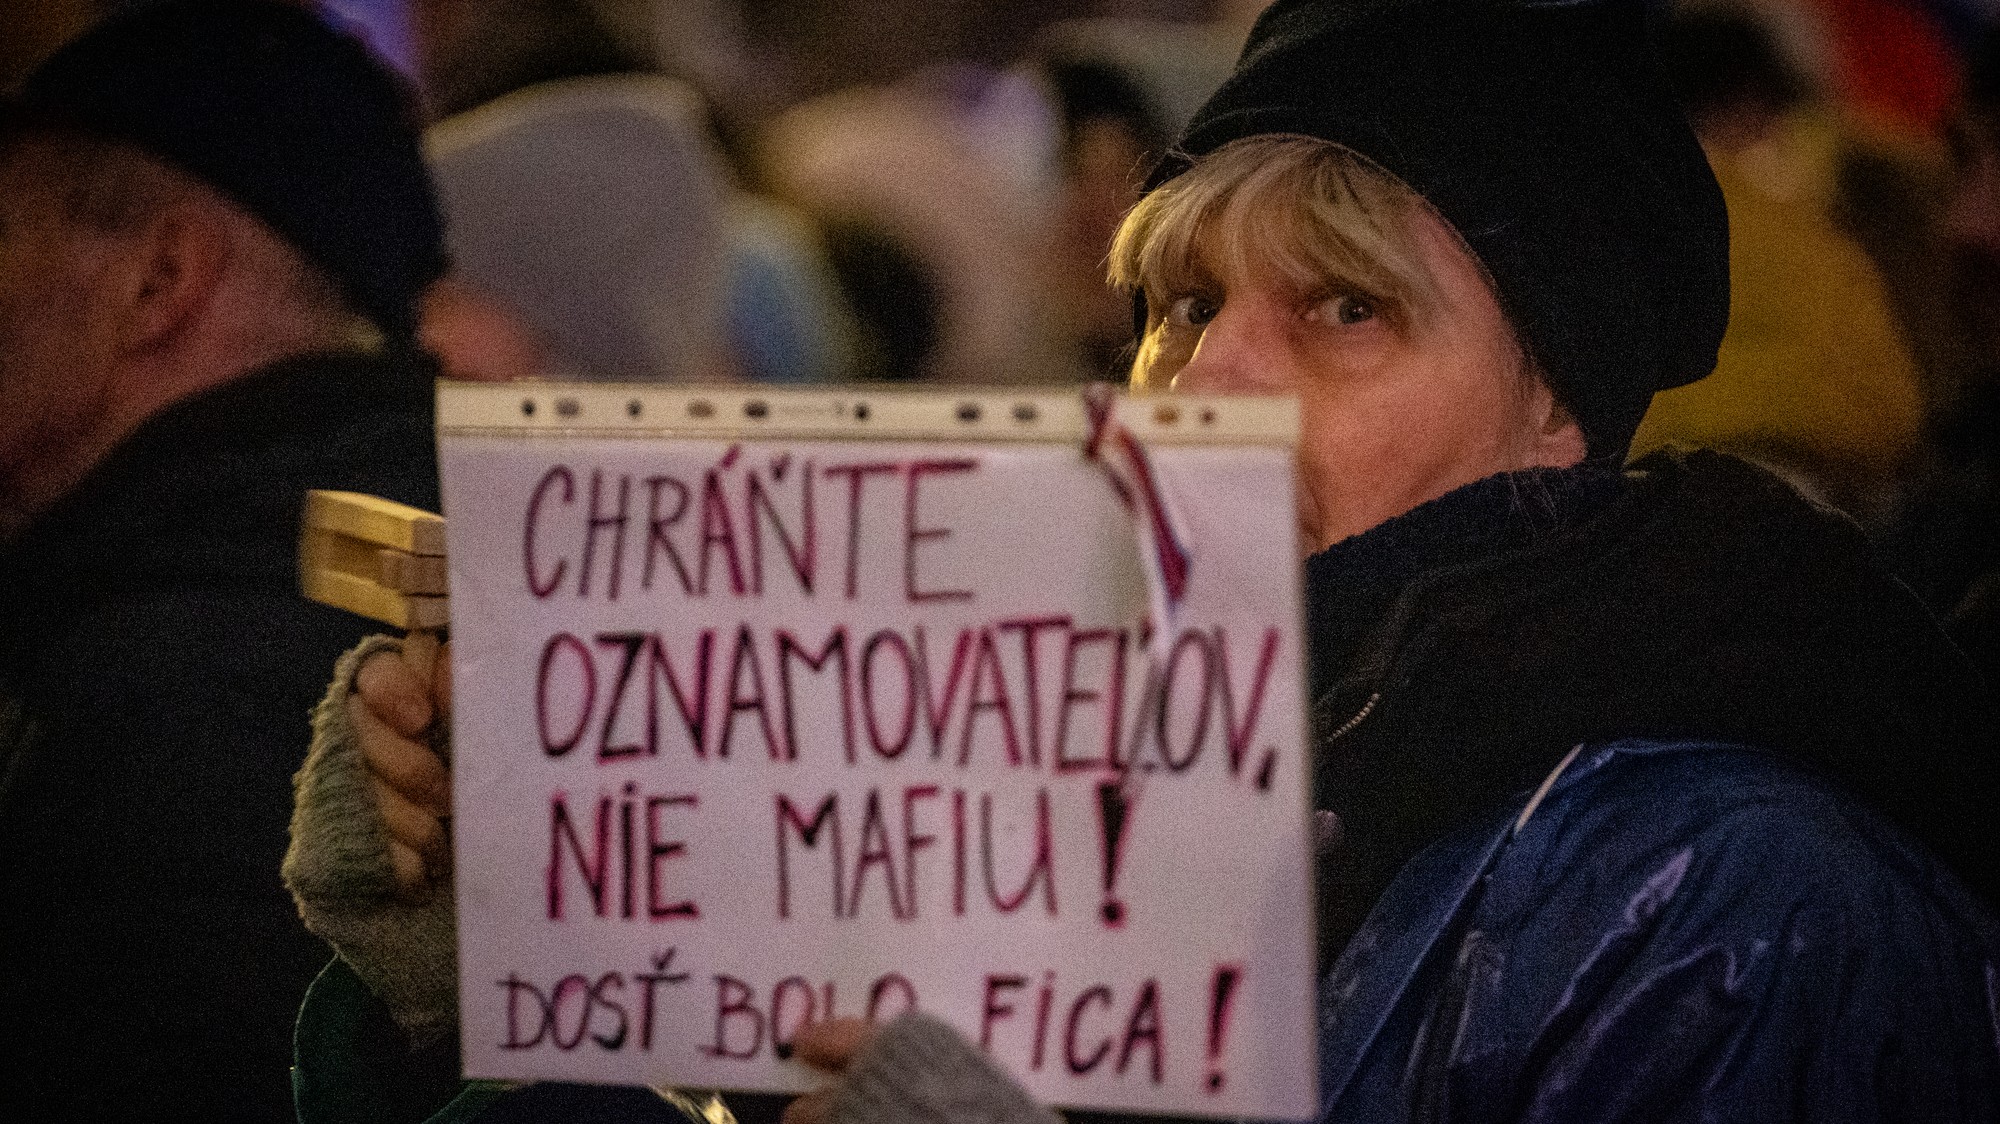 CHRÁŇTE
OZNAMOVATEĽOV,
NIE MAFIU!
DOSŤ BOLO FICA!